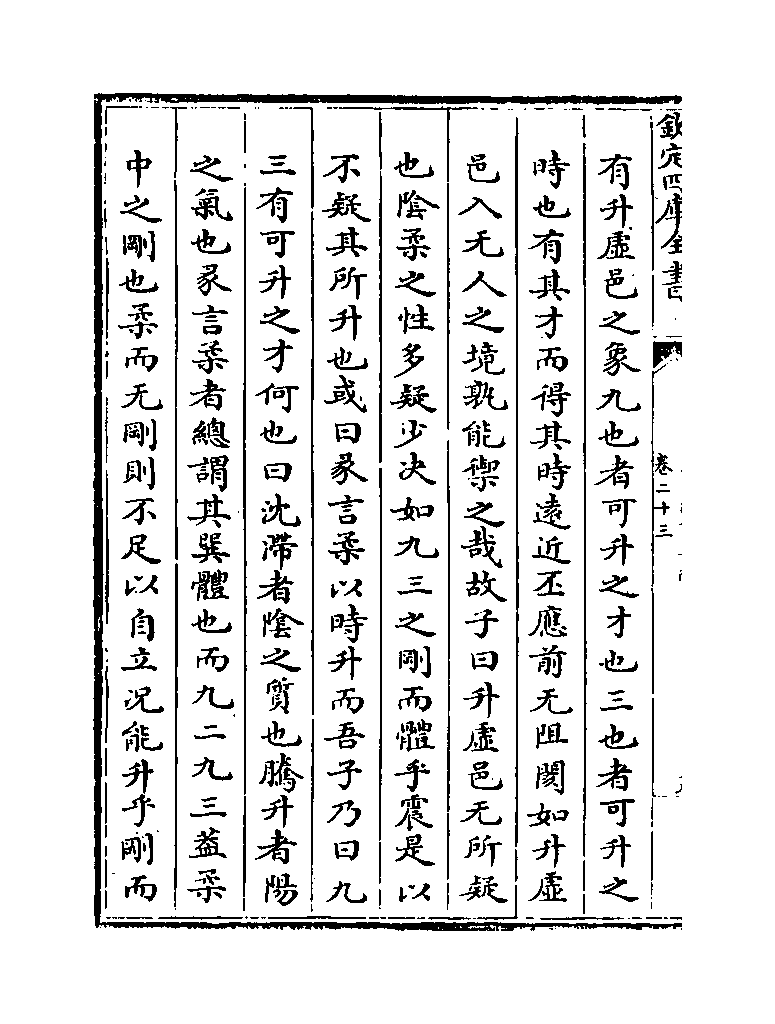 欽定四庫全書
卷二十三
有升虛邑之象九也者可升之才也三也者可升之
時也有其才而得其時遠近丕應前无阻閡如升虛
邑入无人之境孰能禦之哉故子曰升虛邑无所疑
也陰柔之性多疑少决如九三之剛而體乎震是以
不疑其所升也或曰彖言柔以時升而吾子乃曰九
三有可升之才何也曰沈滯者陰之質也騰升者陽
之氣也彖言柔者總謂其巽體也而九二九三葢柔
中之剛也柔而无剛則不足以自立况能升乎剛而